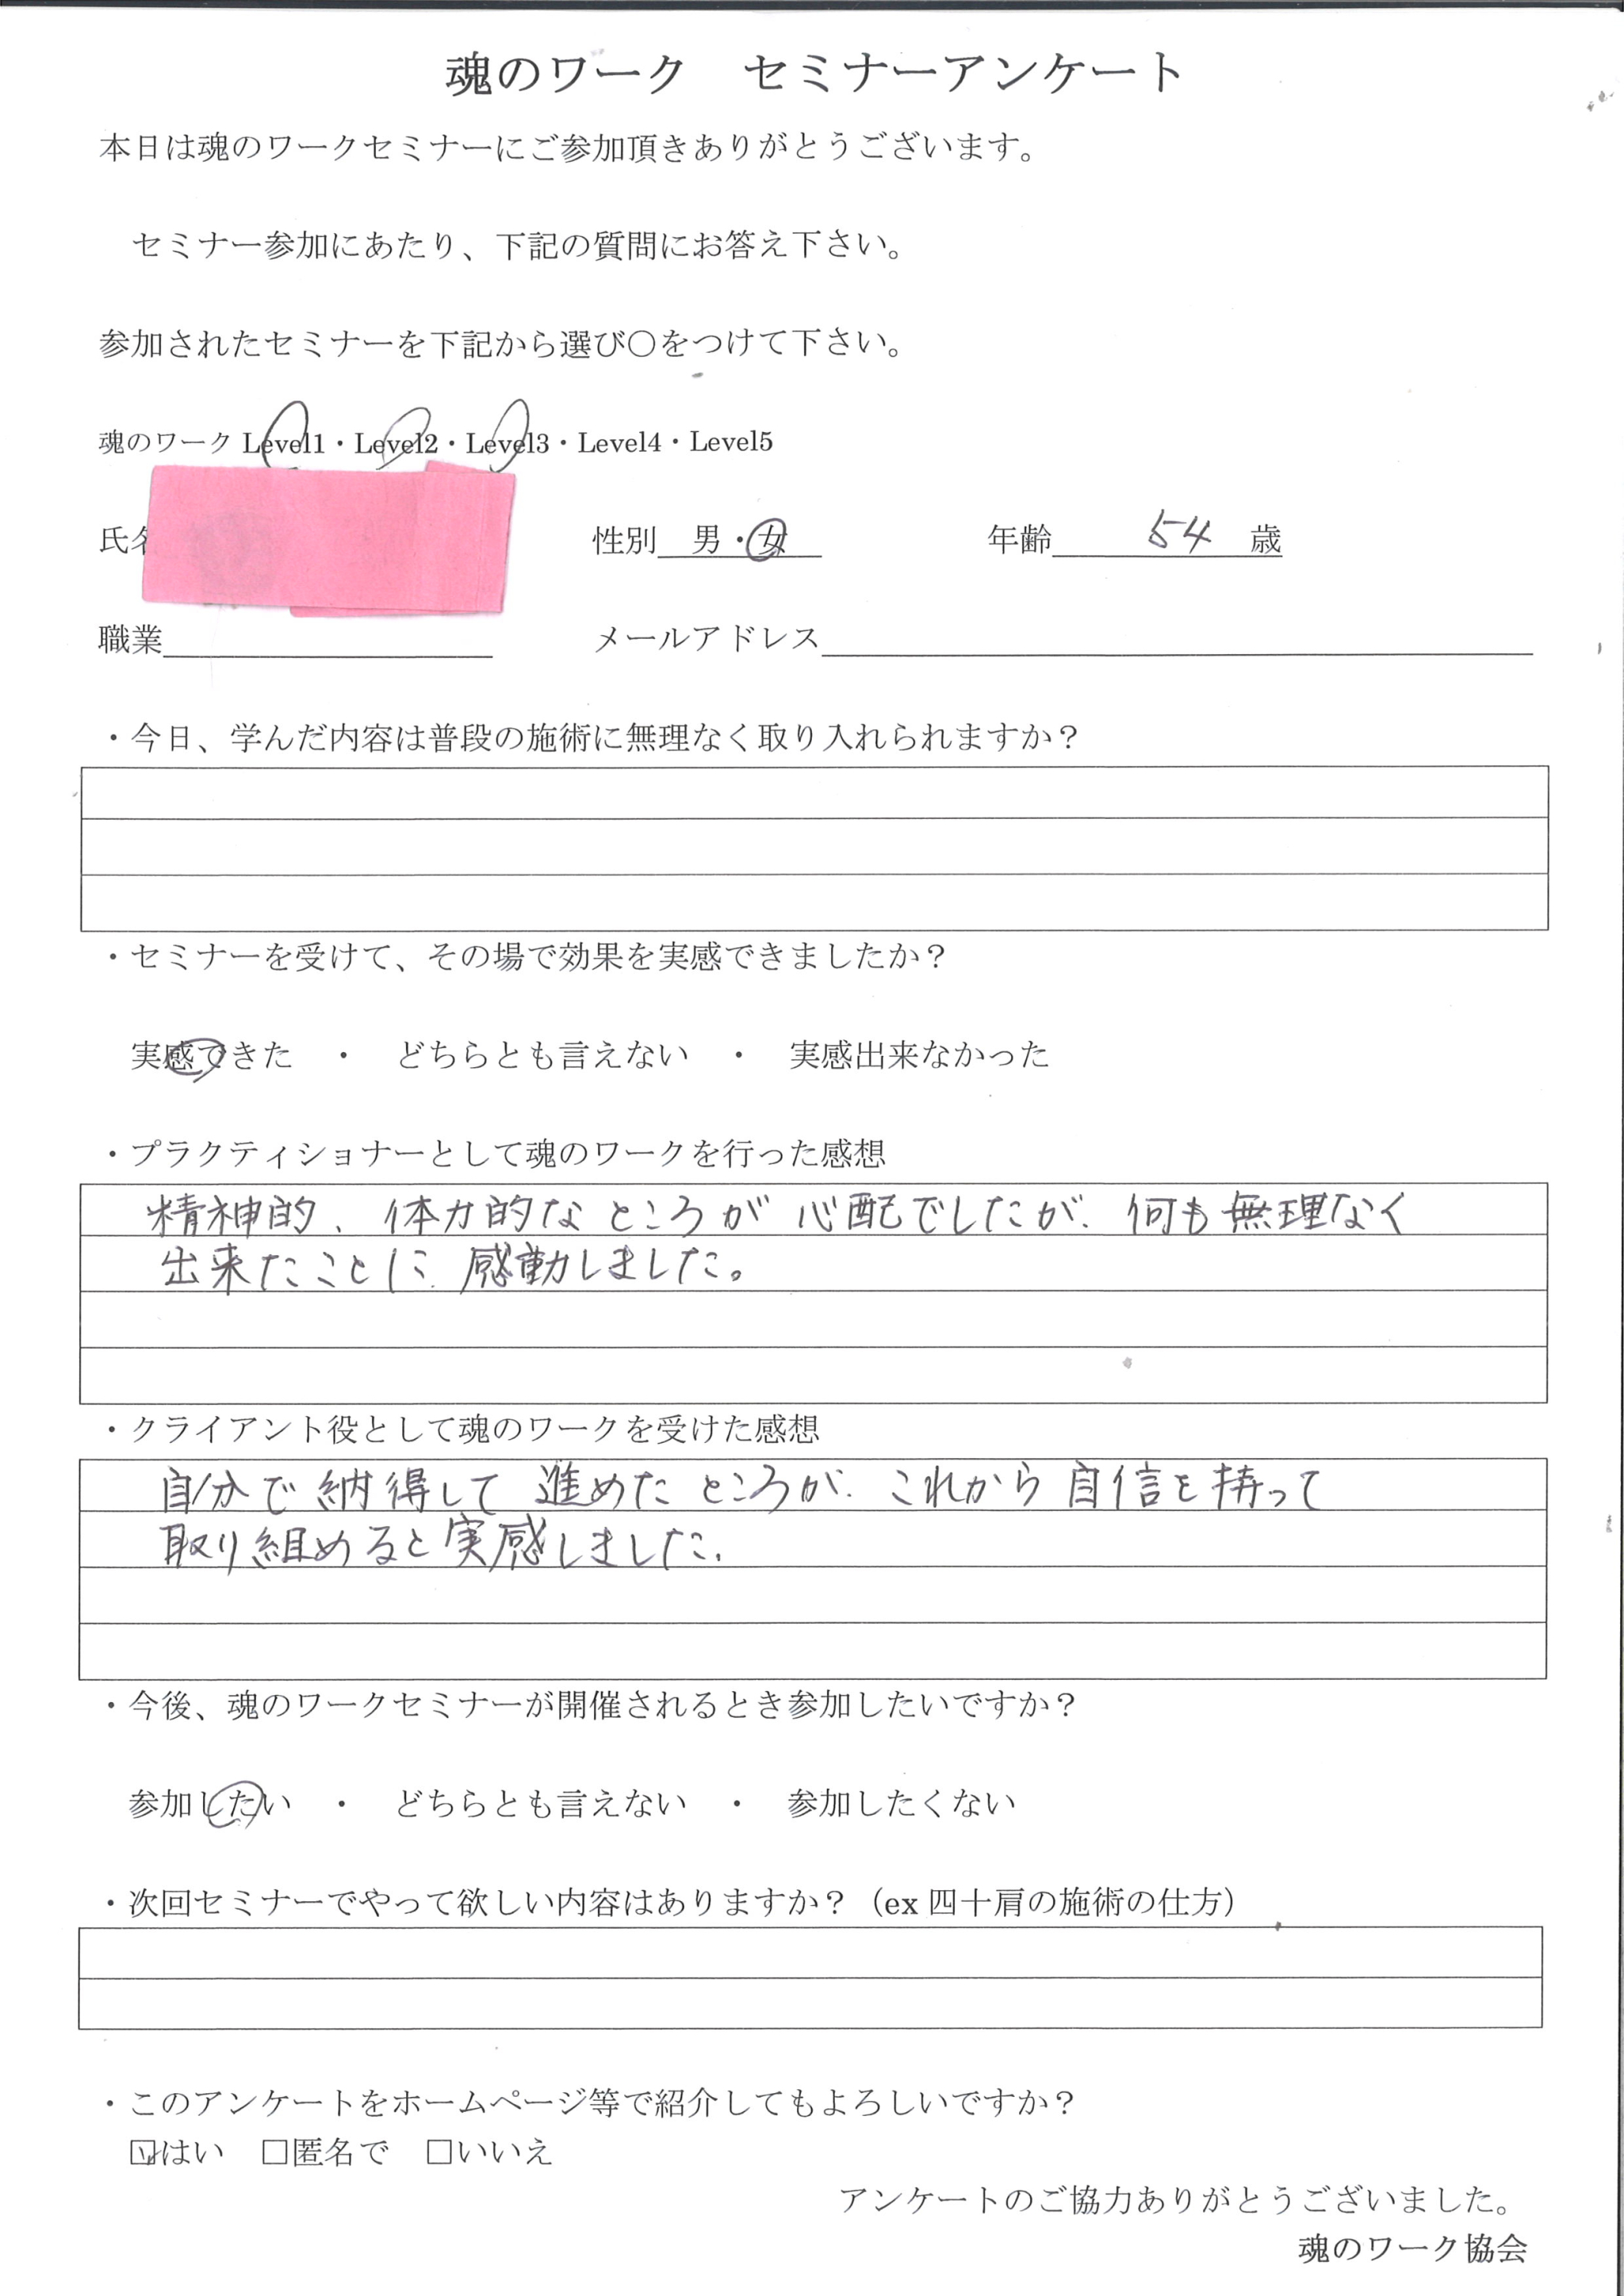 魂のワーク　セミナーアンケート
本日は魂のワークセミナーにご参加頂きありがとうございます。
セミナー参加にあたり、下記の質問にお答え下さい。
参加されたセミナーを下記から選び〇をつけて下さい。
魂のワーク Level1・Level2・Level3・Level4・Level5
氏名 性別　男・女 年齢 54 歳
職業 メールアドレス
・今日、学んだ内容は普段の施術に無理なく取り入れられますか？
・セミナーを受けて、その場で効果を実感できましたか？
実感できた　・　どちらとも言えない　・　実感出来なかった
・プラクティショナーとして魂のワークを行った感想
精神的、体力的なところが心配でしたが、何も無理なく
出来たことに、感動しました。
・クライアント役として魂のワークを受けた感想
自分で納得して進めたところが、これから自信を持って
取り組めると実感しました。
・今後、魂のワークセミナーが開催されるとき参加したいですか？
参加したい　・　どちらとも言えない　・　参加したくない
・次回セミナーでやって欲しい内容はありますか？（ex 四十肩の施術の仕方）
・このアンケートをホームページ等で紹介してもよろしいですか？
☑はい　□匿名で　□いいえ
アンケートのご協力ありがとうございました。
魂のワーク協会